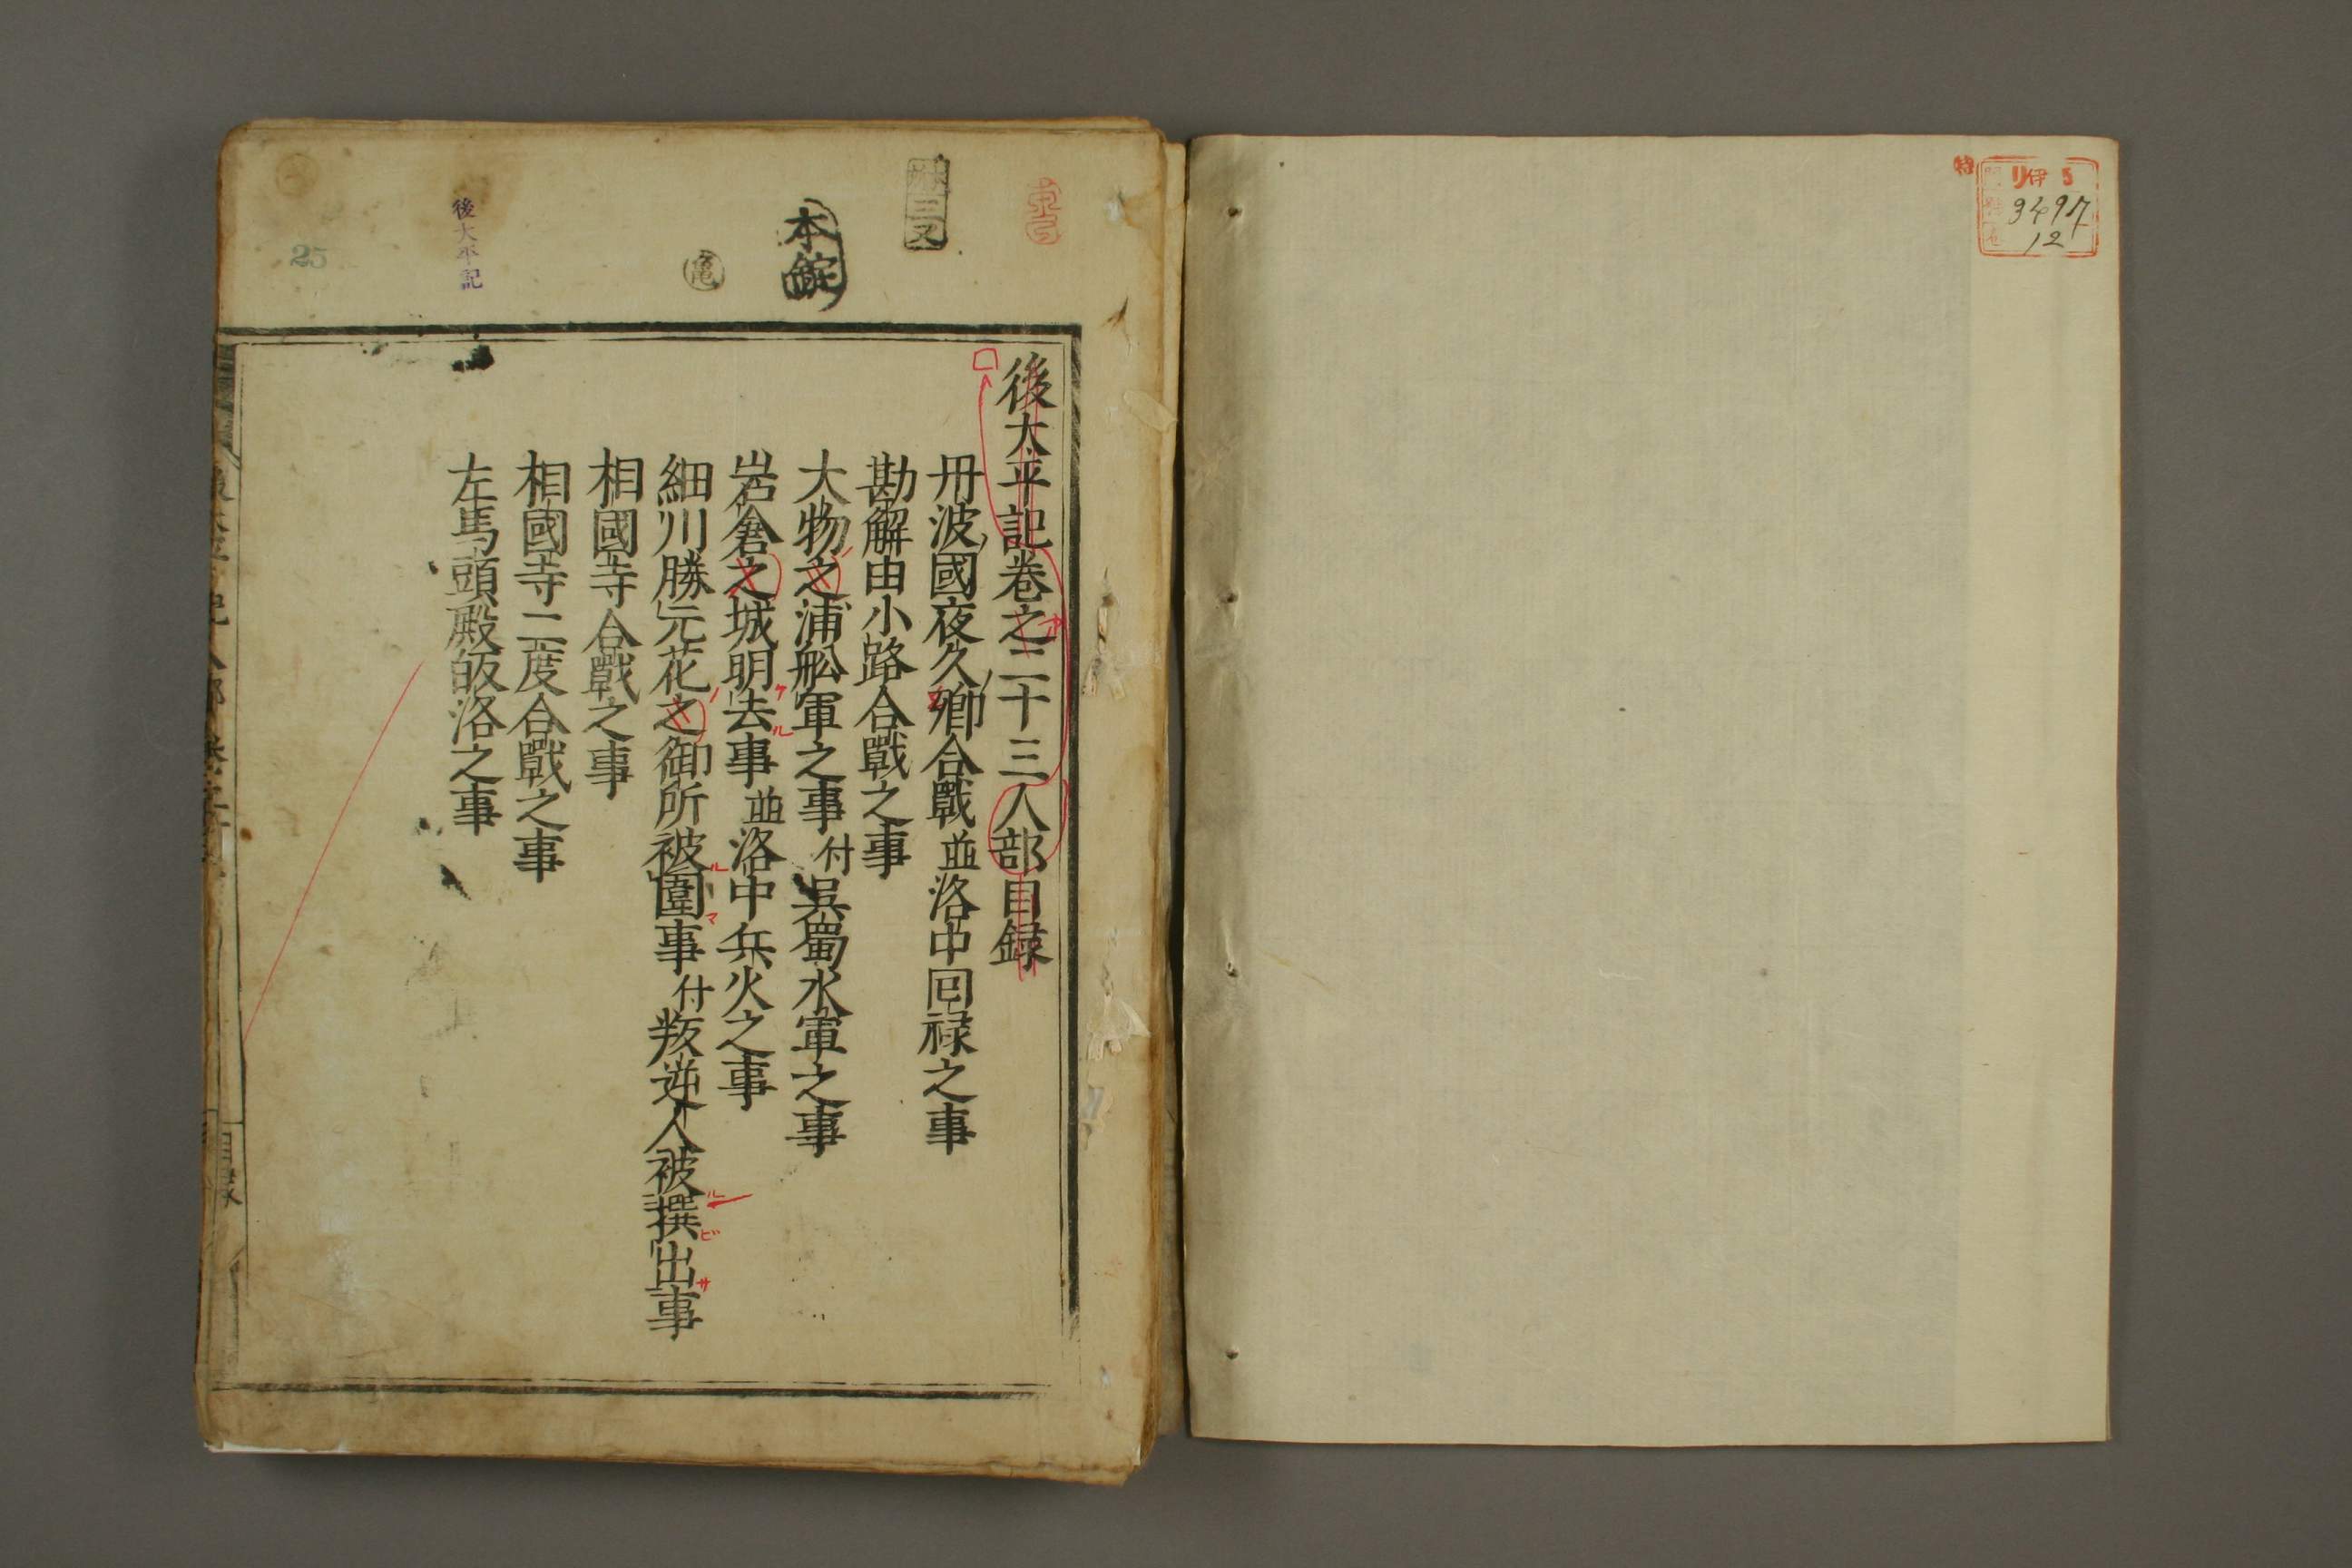 特
リ伊 5
3497
12
後太平記巻之二十三人部目録
丹波國夜久郷合戰並洛中囘禄之事
勘解由小路合戰之事
大物之浦舩軍之事付吳蜀水軍之事
岩倉之城明去事並洛中兵火之事
細川勝元花之御所被圍事付叛逆人被撰出事
相國寺合戰之事
相國寺二度合戰之事
左馬頭殿皈洛之事
後太平記
25
目録